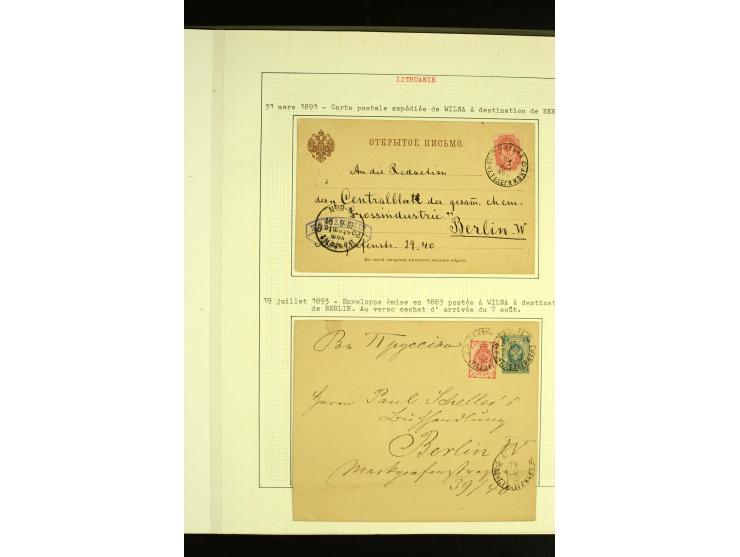 LITHUANIE
31 mars 1891 - Carte postale expédiée de WILNA à destination de BER
ОТКРЫТОЕ ПИСЬМО.
An die Redaction
des "Centralblatt der gesam. chem.
Grossindustrie"
Berlin. W
39.40
19 juillet 1893 - Enveloppe émise en 1883 postée à WILNA à destinat
de BERLIN. Au verso cachet d' arrivée du 7 août.
Въ Пруссію
Herrn Paul Scheller's
Buchhandlung
Berlin W
Markgrafenstrasse
39/40